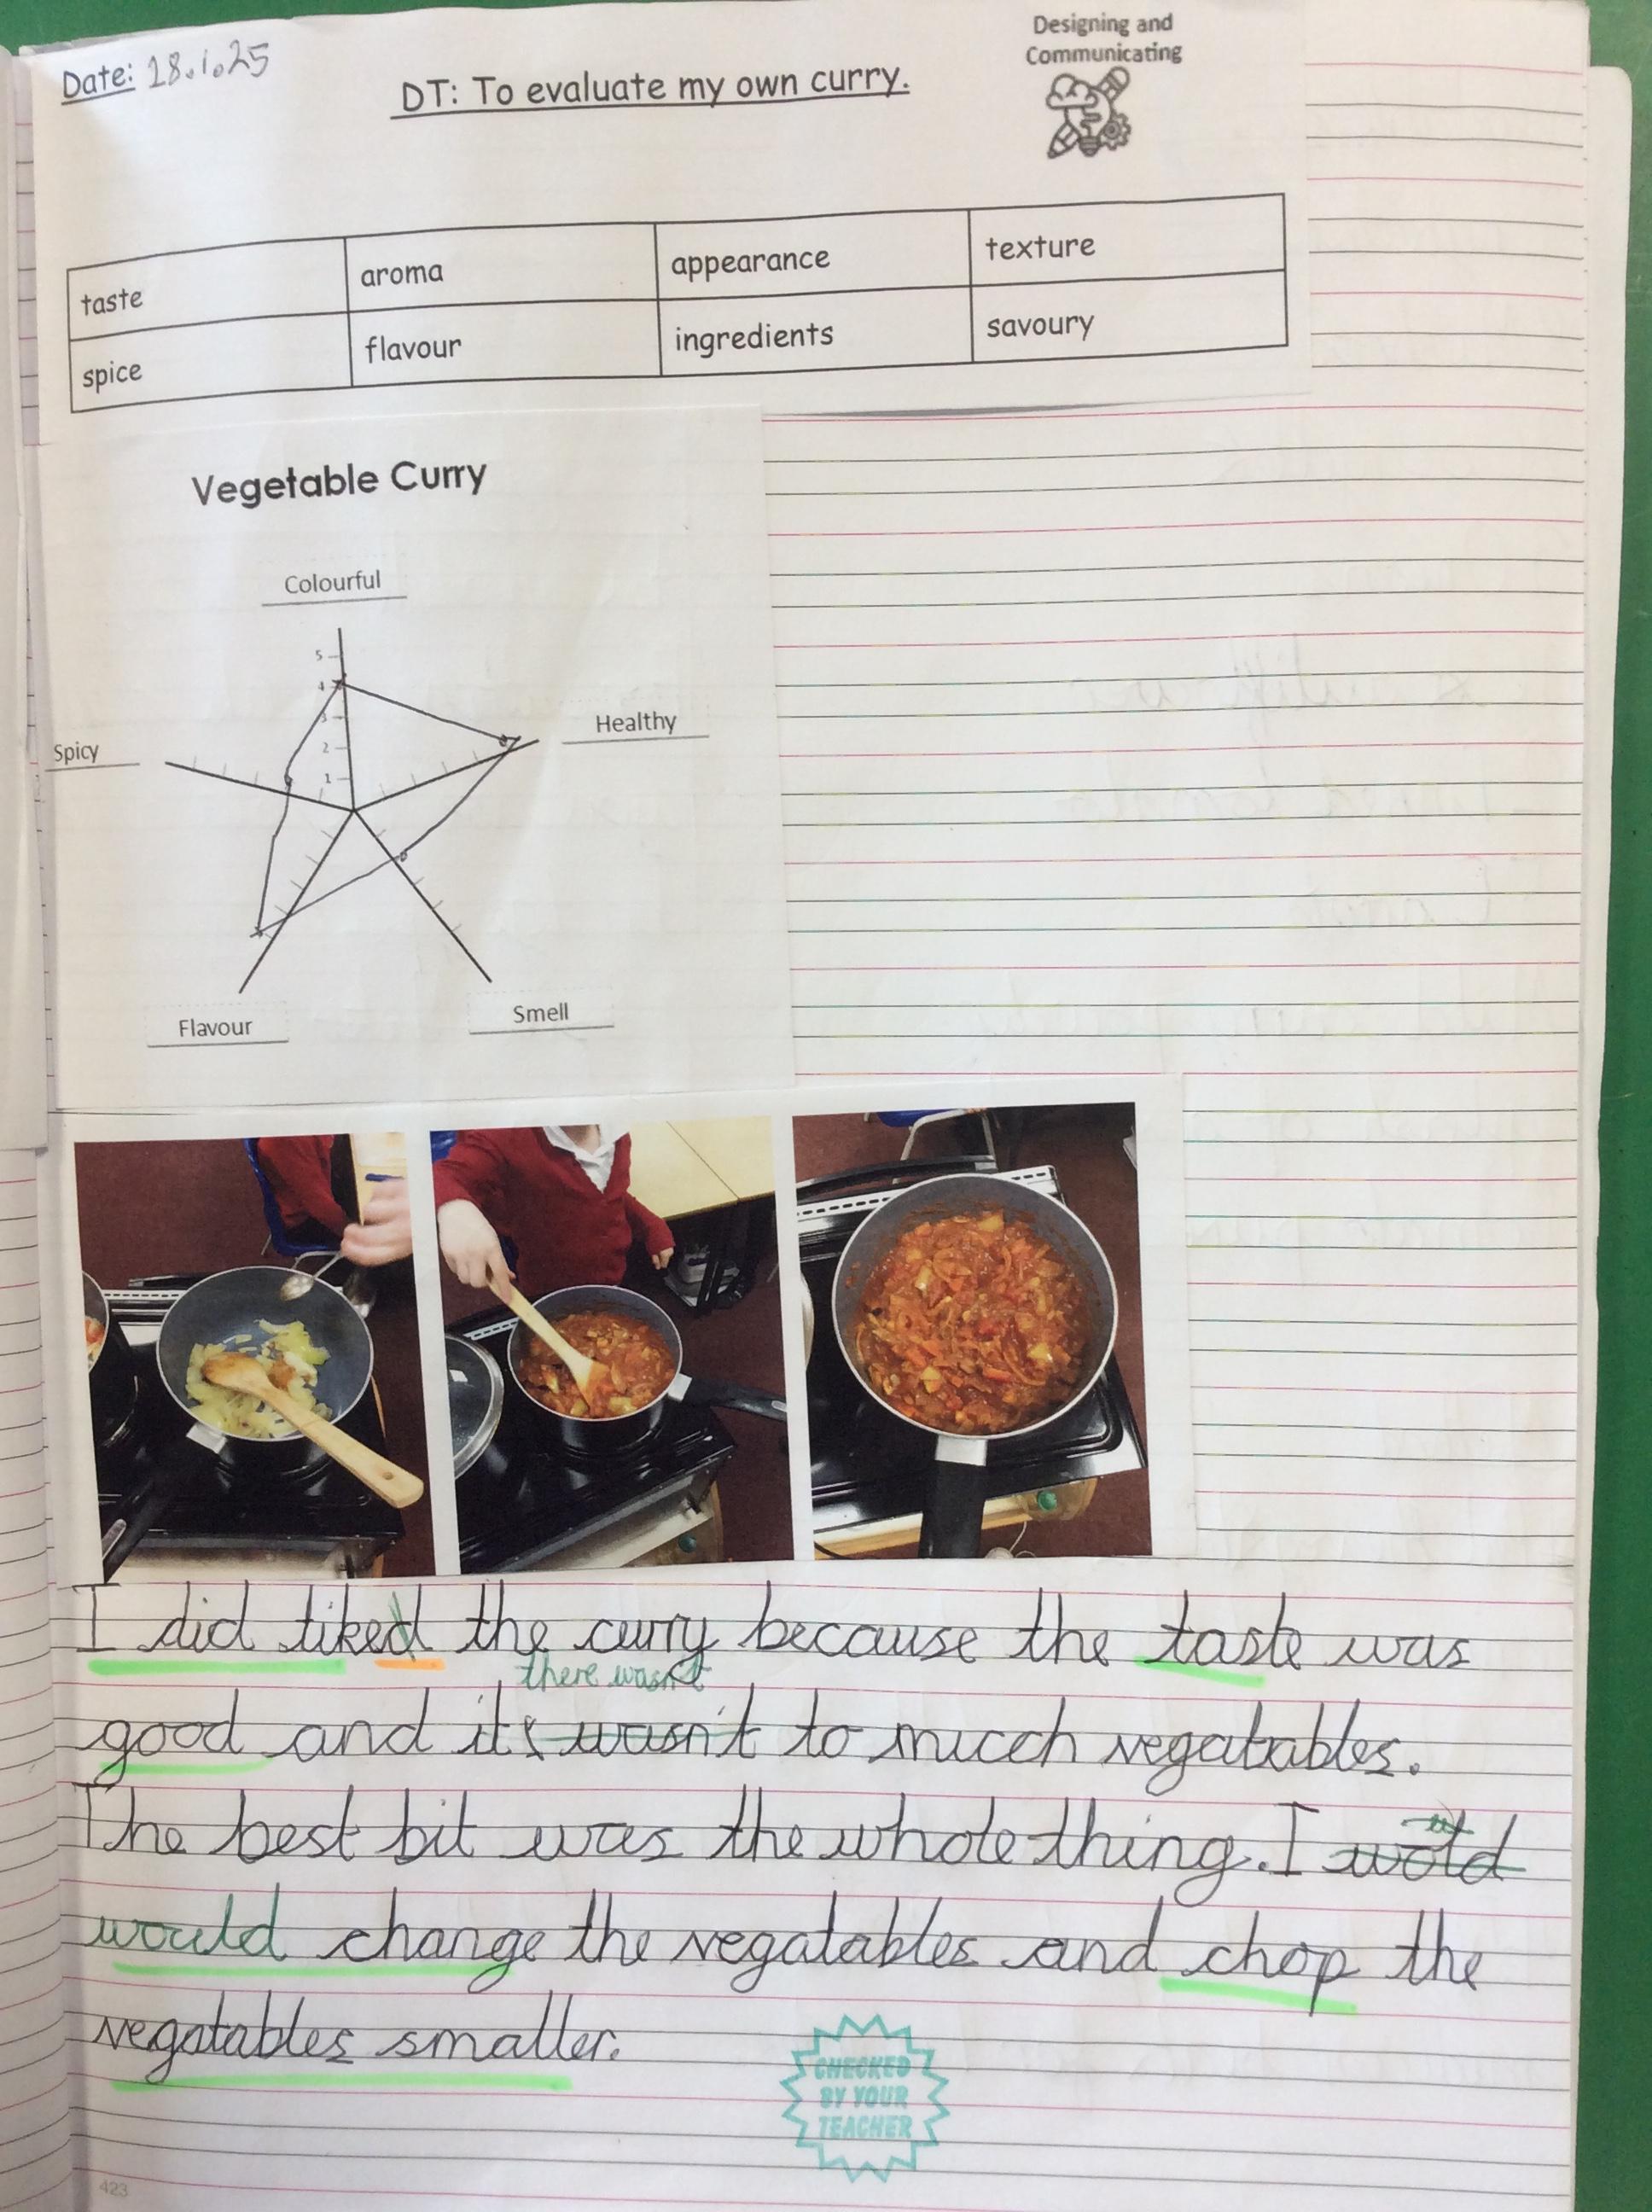 Designing and
Communicating
Date: 28.1.25
DT: To evaluate my own curry.
taste aroma appearance texture
spice flavour ingredients savoury
Vegetable Curry
Colourful
5
4
3
2
1
Healthy
Spicy
Flavour
Smell
I did liked the curry because the taste was
there wasn't
good and its wasn't to mucch vegatables.
The best bit was the whole thing. I wold
would change the vegatables and chop the
vegatables smaller.
CHECKED
BY YOUR
TEACHER
423